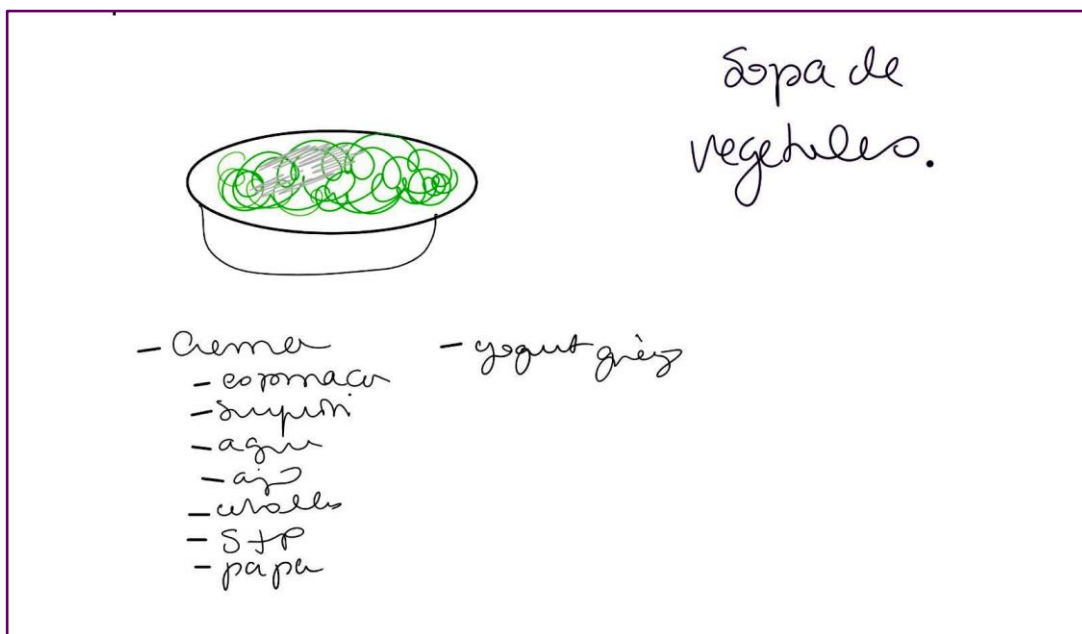 Sopa de
vegetales.
- Crema
- espinaca
- agua
- ajo
- cebolla
- S+P
- papa
- yogurt griego